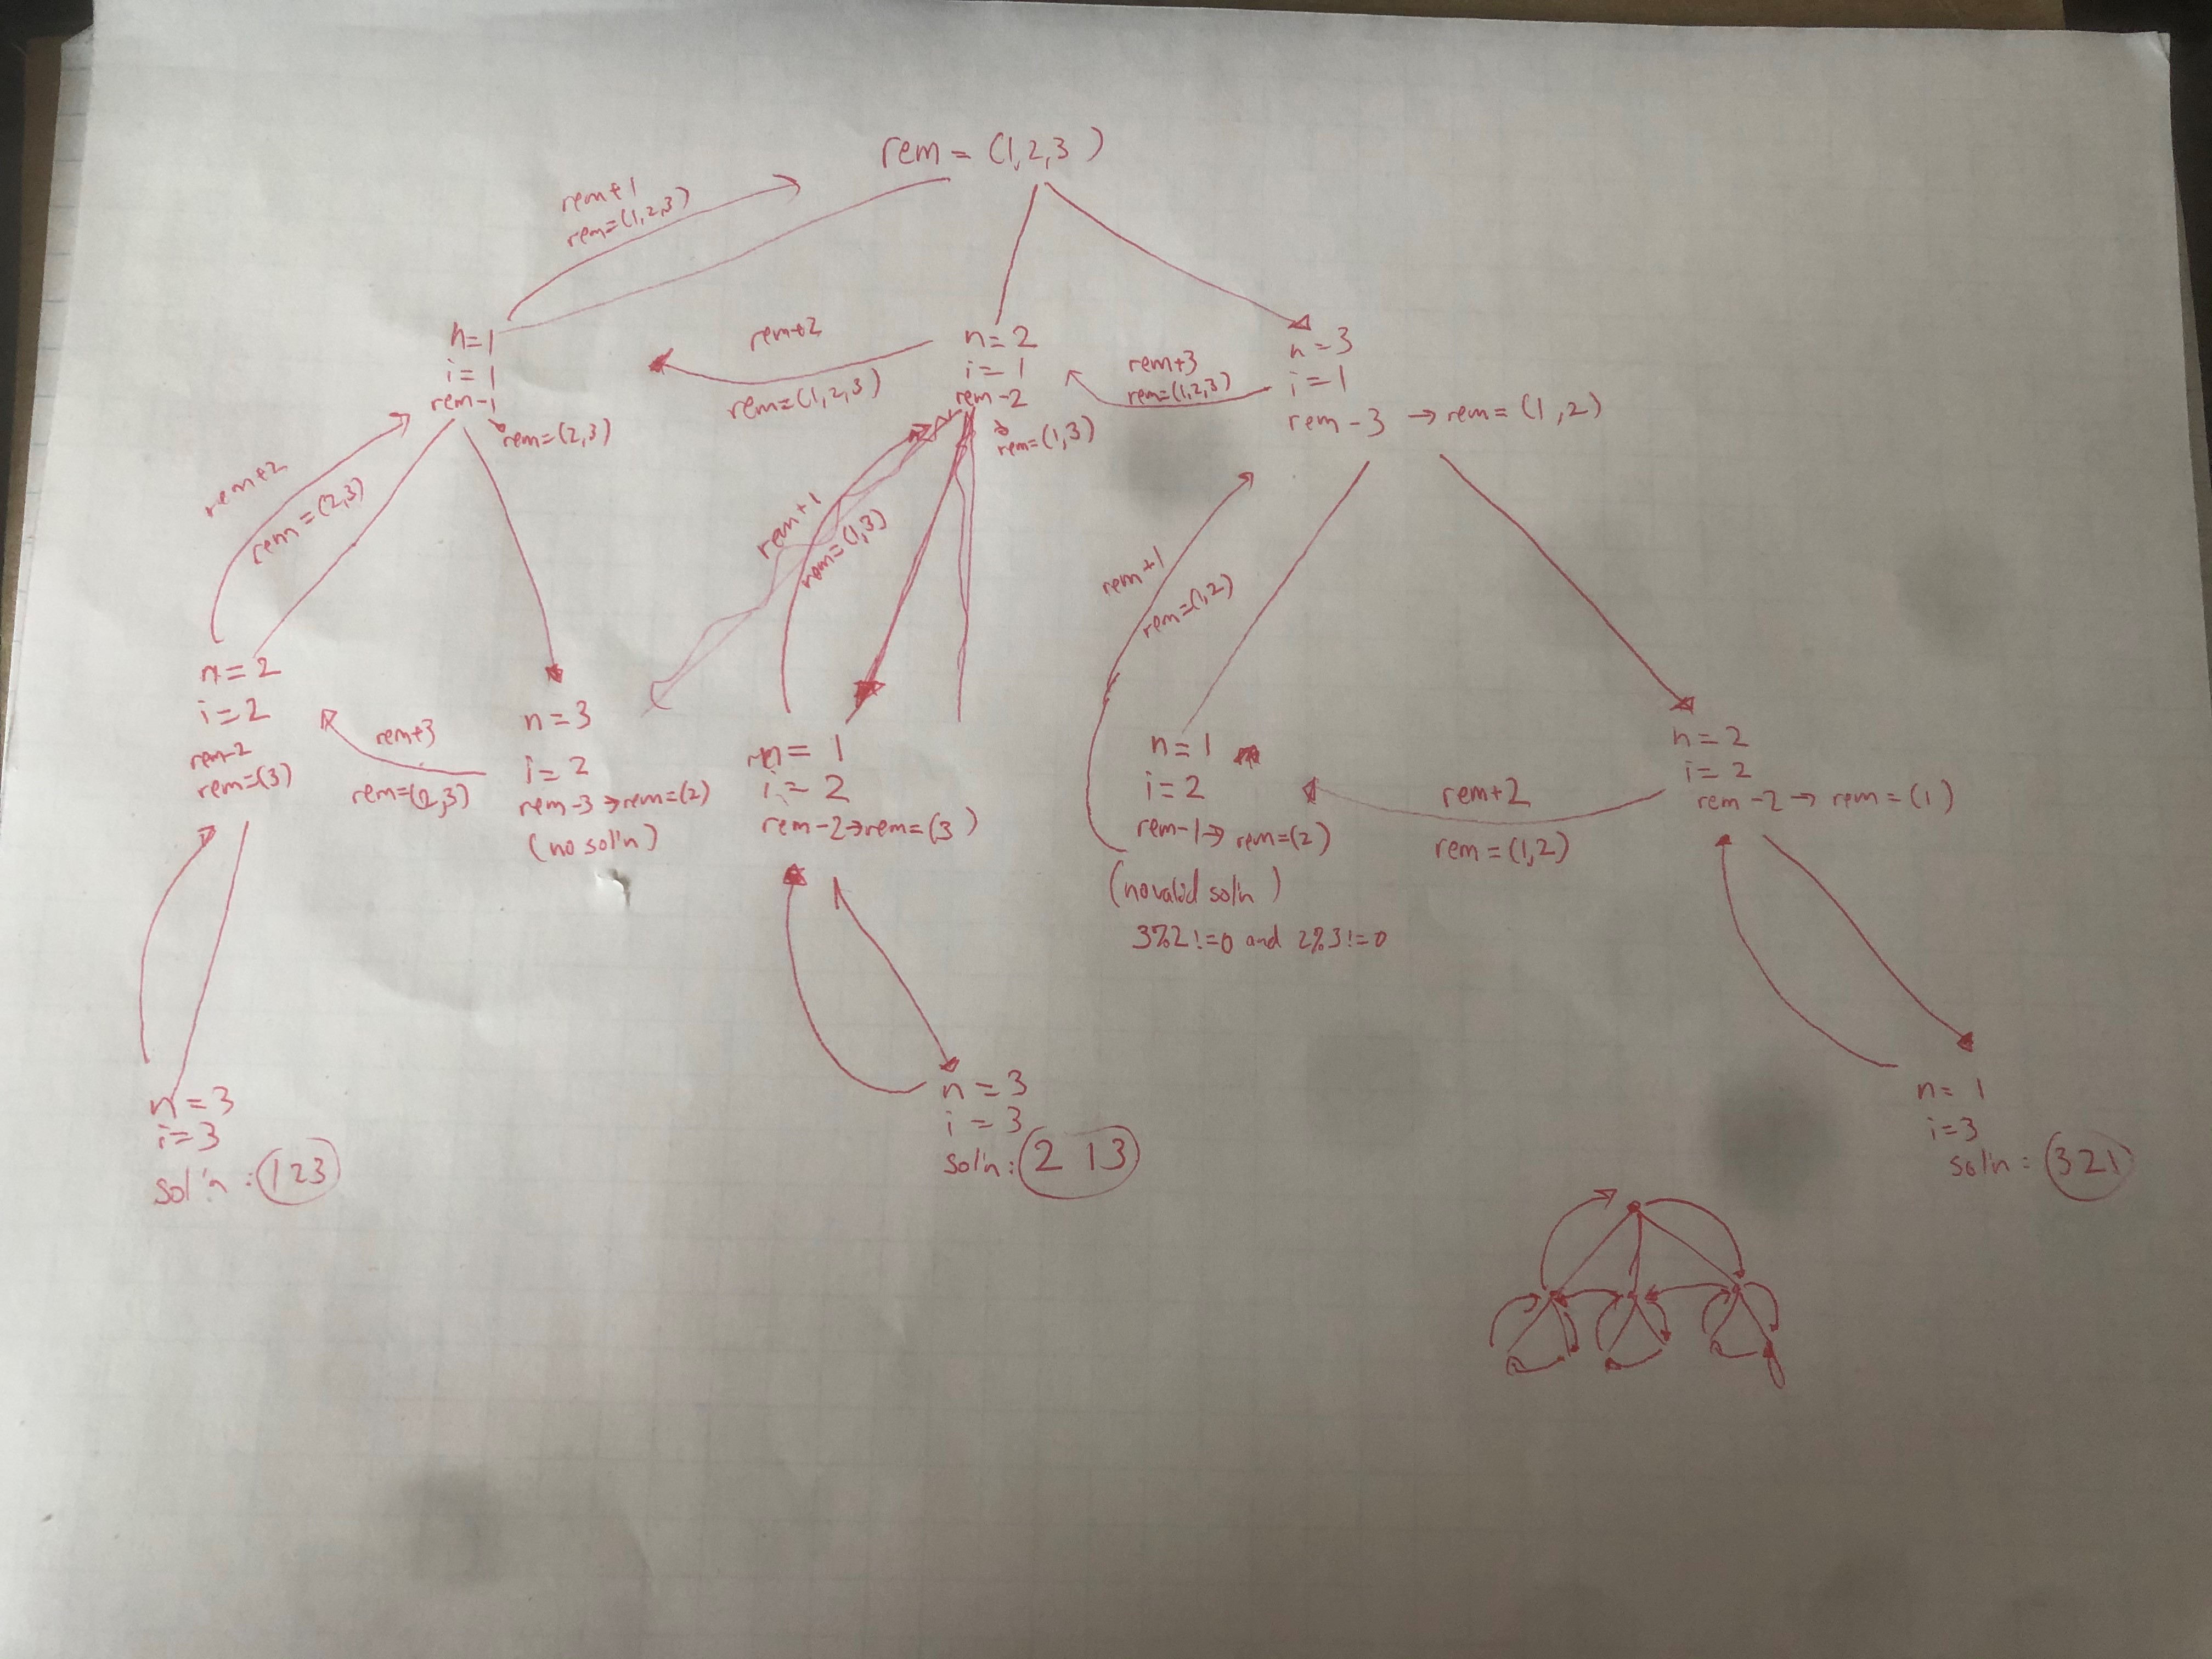 rem = (1,2,3)
rem+1
rem=(1,2,3)
n=1
i=1
rem-1
rem=(2,3)
rem+2
rem=(1,2,3)
n=2
i=1
rem-2
rem=(1,3)
rem+3
rem=(1,2,3)
n=3
i=1
rem-3 → rem=(1,2)
rem+2
rem=(2,3)
n=2
i=2
rem-2
rem=(3)
rem+3
rem=(2,3)
n=3
i=2
rem-3→rem=(2)
(no sol'n)
rem+1
rem=(1,3)
n=1
i=2
rem-2→rem=(3)
rem+1
rem=(1,2)
n=1
i=2
rem-1→rem=(2)
(no valid sol'n)
3%2!=0 and 2%3!=0
rem+2
rem=(1,2)
n=2
i=2
rem-2→rem=(1)
n=3
i=3
sol'n: 123
n=3
i=3
sol'n: 213
n=1
i=3
sol'n: 321